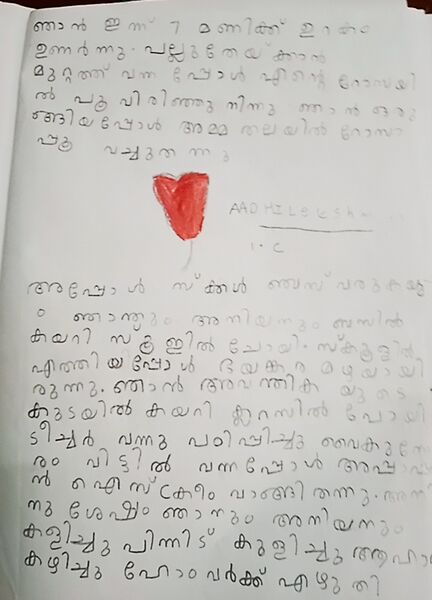 ഞാൻ ഇന്ന് 7 മണിക്ക് ഉറക്കം
ഉണർന്നു. പല്ലുതേയ്ക്കാൻ
മുറ്റത്ത് വന്നപ്പോൾ എന്റെ റോസയി
ൽ പൂ വിരിഞ്ഞു നിന്നു ഞാൻ ഒരു
ങ്ങിയപ്പോൾ അമ്മ തലയിൽ റോസാ
പ്പൂ വച്ചുതന്നു
AADHILEKSH
1. C
അപ്പോൾ സ്ക്കൾ ബസ് വരുകയു
ം ഞാനും അനിയനും ബസിൽ
കയറി സ്കൂളിൽ പോയി. സ്കൂളിൽ
എത്തിയപ്പോൾ ഭയങ്കര മഴയായി
രുന്നു. ഞാൻ അവന്തികയുടെ
കുടയിൽ കയറി ക്ലാസിൽ പോയി
ടീച്ചർ വന്നു പഠിപ്പിച്ചു വൈകുന്നേ
രം വീട്ടിൽ വന്നപ്പോൾ അപ്പാപ്പ
ൻ ഐസ്ക്രീം വാങ്ങിതന്നു. അതി
നു ശേഷം ഞാനും അനിയനും
കളിച്ചു പിന്നീട് കുളിച്ചു ആഹാ
കഴിച്ചു ഹോംവർക്ക് എഴുതി